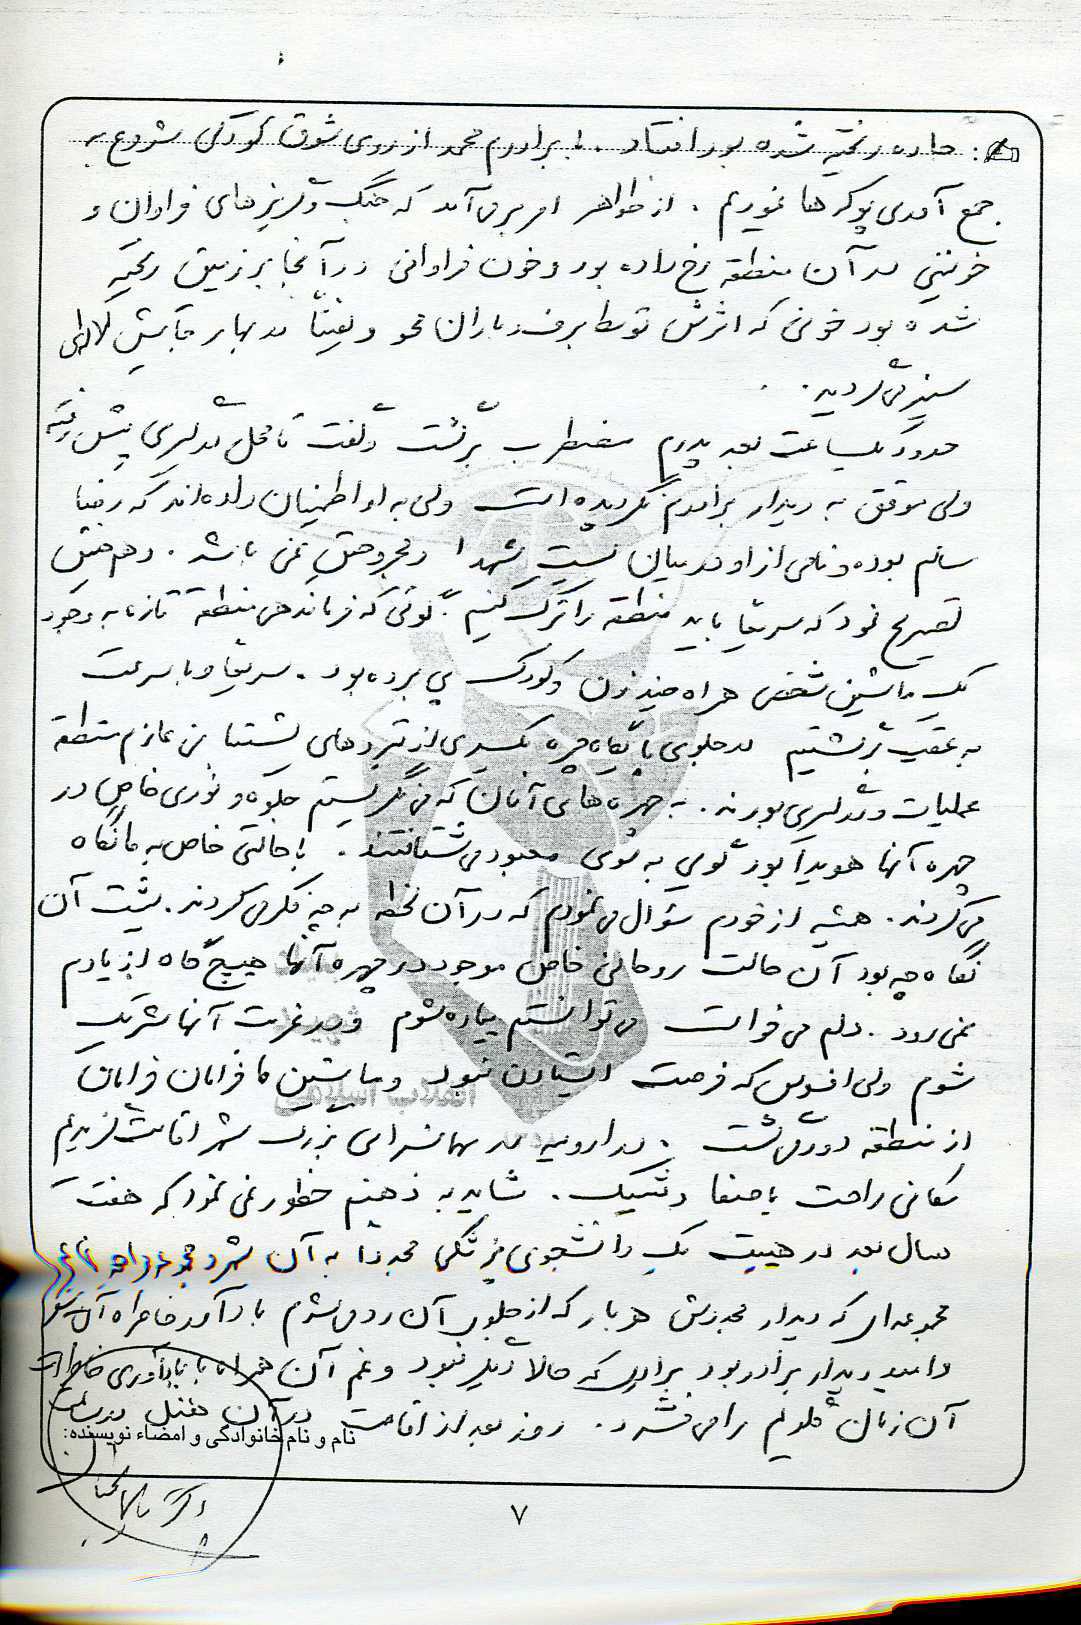 جاده ریخته شده بود افتاد . با برادرم محمد از روی شوق کودکی شروع به
جمع آمدی پوکه ها نمودیم . از ظواهر امر بر می آمد که جنگ و گریزهای فراوان و
خونینی در آن منطقه رخ داده بود و خون فراوانی در آنجا بر زمین ریخته
شده بود خونی که اثرش توسط برف و باران محو و یقیناً در بهار جایش لاله‌ای
سبز می گردید .
حدود یکساعت بعد پدرم مضطرب برگشت و گفت تا محل درگیری پیش رفته
ولی موفق به دیدار برادرم نگردیده است ولی به او اطمینان داده‌اند که رضا
سالم بوده و نامی از او در میان لیست شهدا و مجروحین نمی باشد . و همچنین
تصریح نمود که سریعاً باید منطقه را ترک کنیم گوئی که فرماندهی منطقه تازه به وجود
یک ماشین شخصی همراه چند زن و کودک پی برده بود . سریعاً و با سرعت
به عقب برگشتیم در جلوی پایگاه جیره یکسری از نیروهای عازم منطقه
عملیات و درگیری بودند . به چهره های آنان که می نگریستیم جلوه و نوری خاص در
چهره آنها هویدا بود گوئی به سوی معبود می شتافتند . با حالتی خاص به ما نگاه
می کردند . همیشه از خودم سؤال می نمودم که در آن لحظه به چه فکر می کردند . پشت آن
نگاه چه بود آن حالت روحانی خاص موجود در چهره آنها هیچ گاه از یادم
نمی رود . دلم می خواست می توانستم پیاده شوم و در غربت آنها شریک
شوم ولی افسوس که فرصت ایستادن نبود و ماشین ما فراماً فراماً
از منطقه دور می گشت . در ارومیه در مهمانسرای بزرگ شهر اقامت گزیدیم
مکانی راحت با صفا و شیک . شاید به ذهنم خطور نمی نمود که هفت
سال بعد در هیبت یک دانشجوی پزشکی مجدداً به آن شهر
مجموعه‌ای که دیدار مجددش هر بار که از جلوی آن رد می شوم یادآور خاطره آن
و امید دیدار برادر بود برادری که حالا دیگر نبود و غم آن همراه با یادآوری خاطرات
آن زمان گلویم را می فشرد . روز بعد از اقامت در آن هتل
نام و نام خانوادگی و امضاء نویسنده:
۷